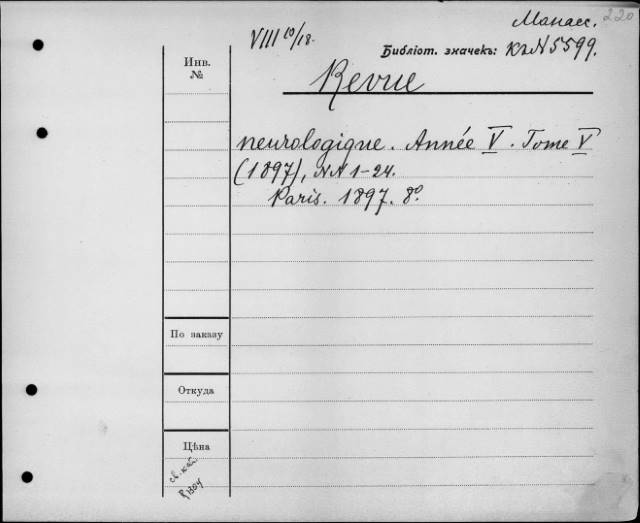 Манасс. 220
VIII 10/18.
Библіот. значекъ: КлN5599.
Инв.
№
Revue
neurologique. Année V. Tome V
(1897), NN 1-24.
Paris. 1897. 8º.
По заказу
Откуда
Цѣна